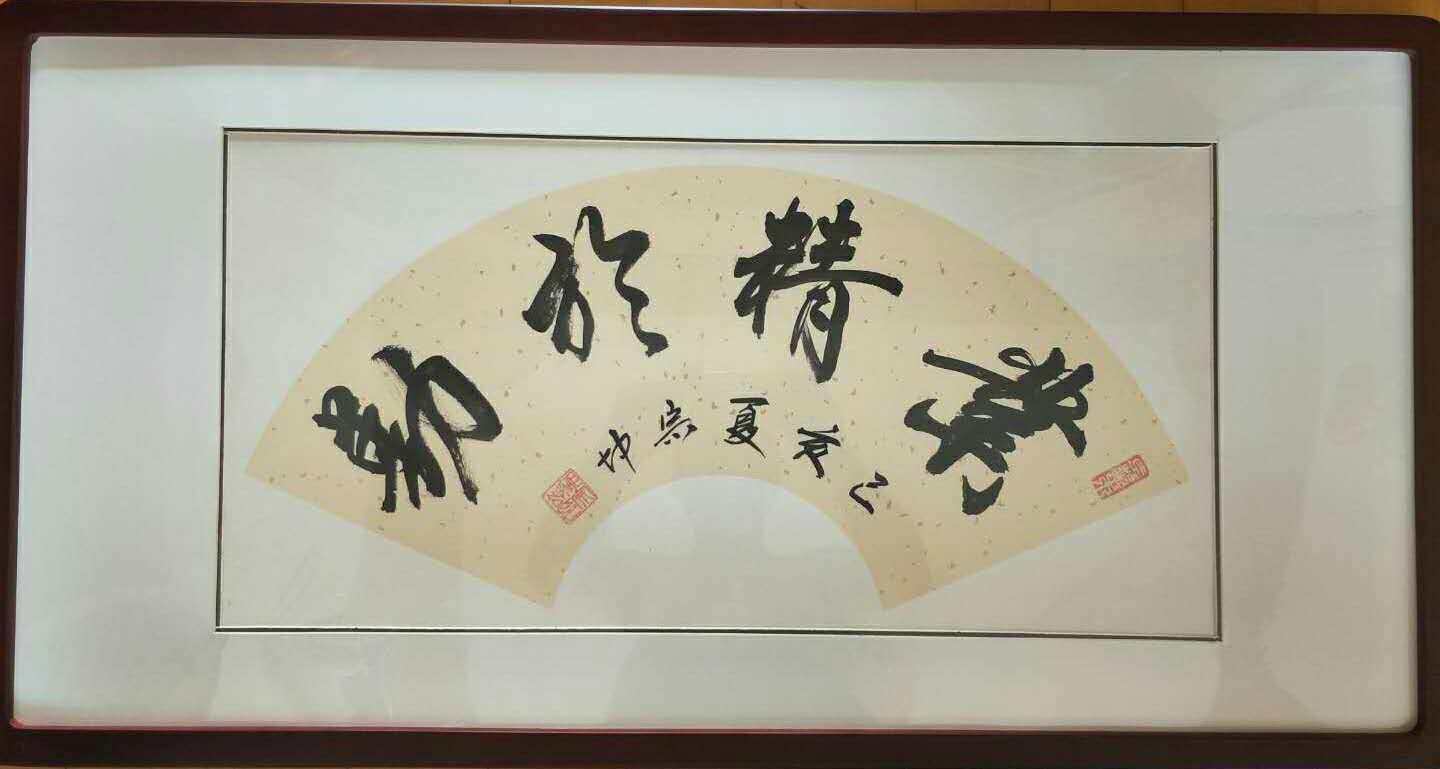 業精於勤
己亥夏宗坤